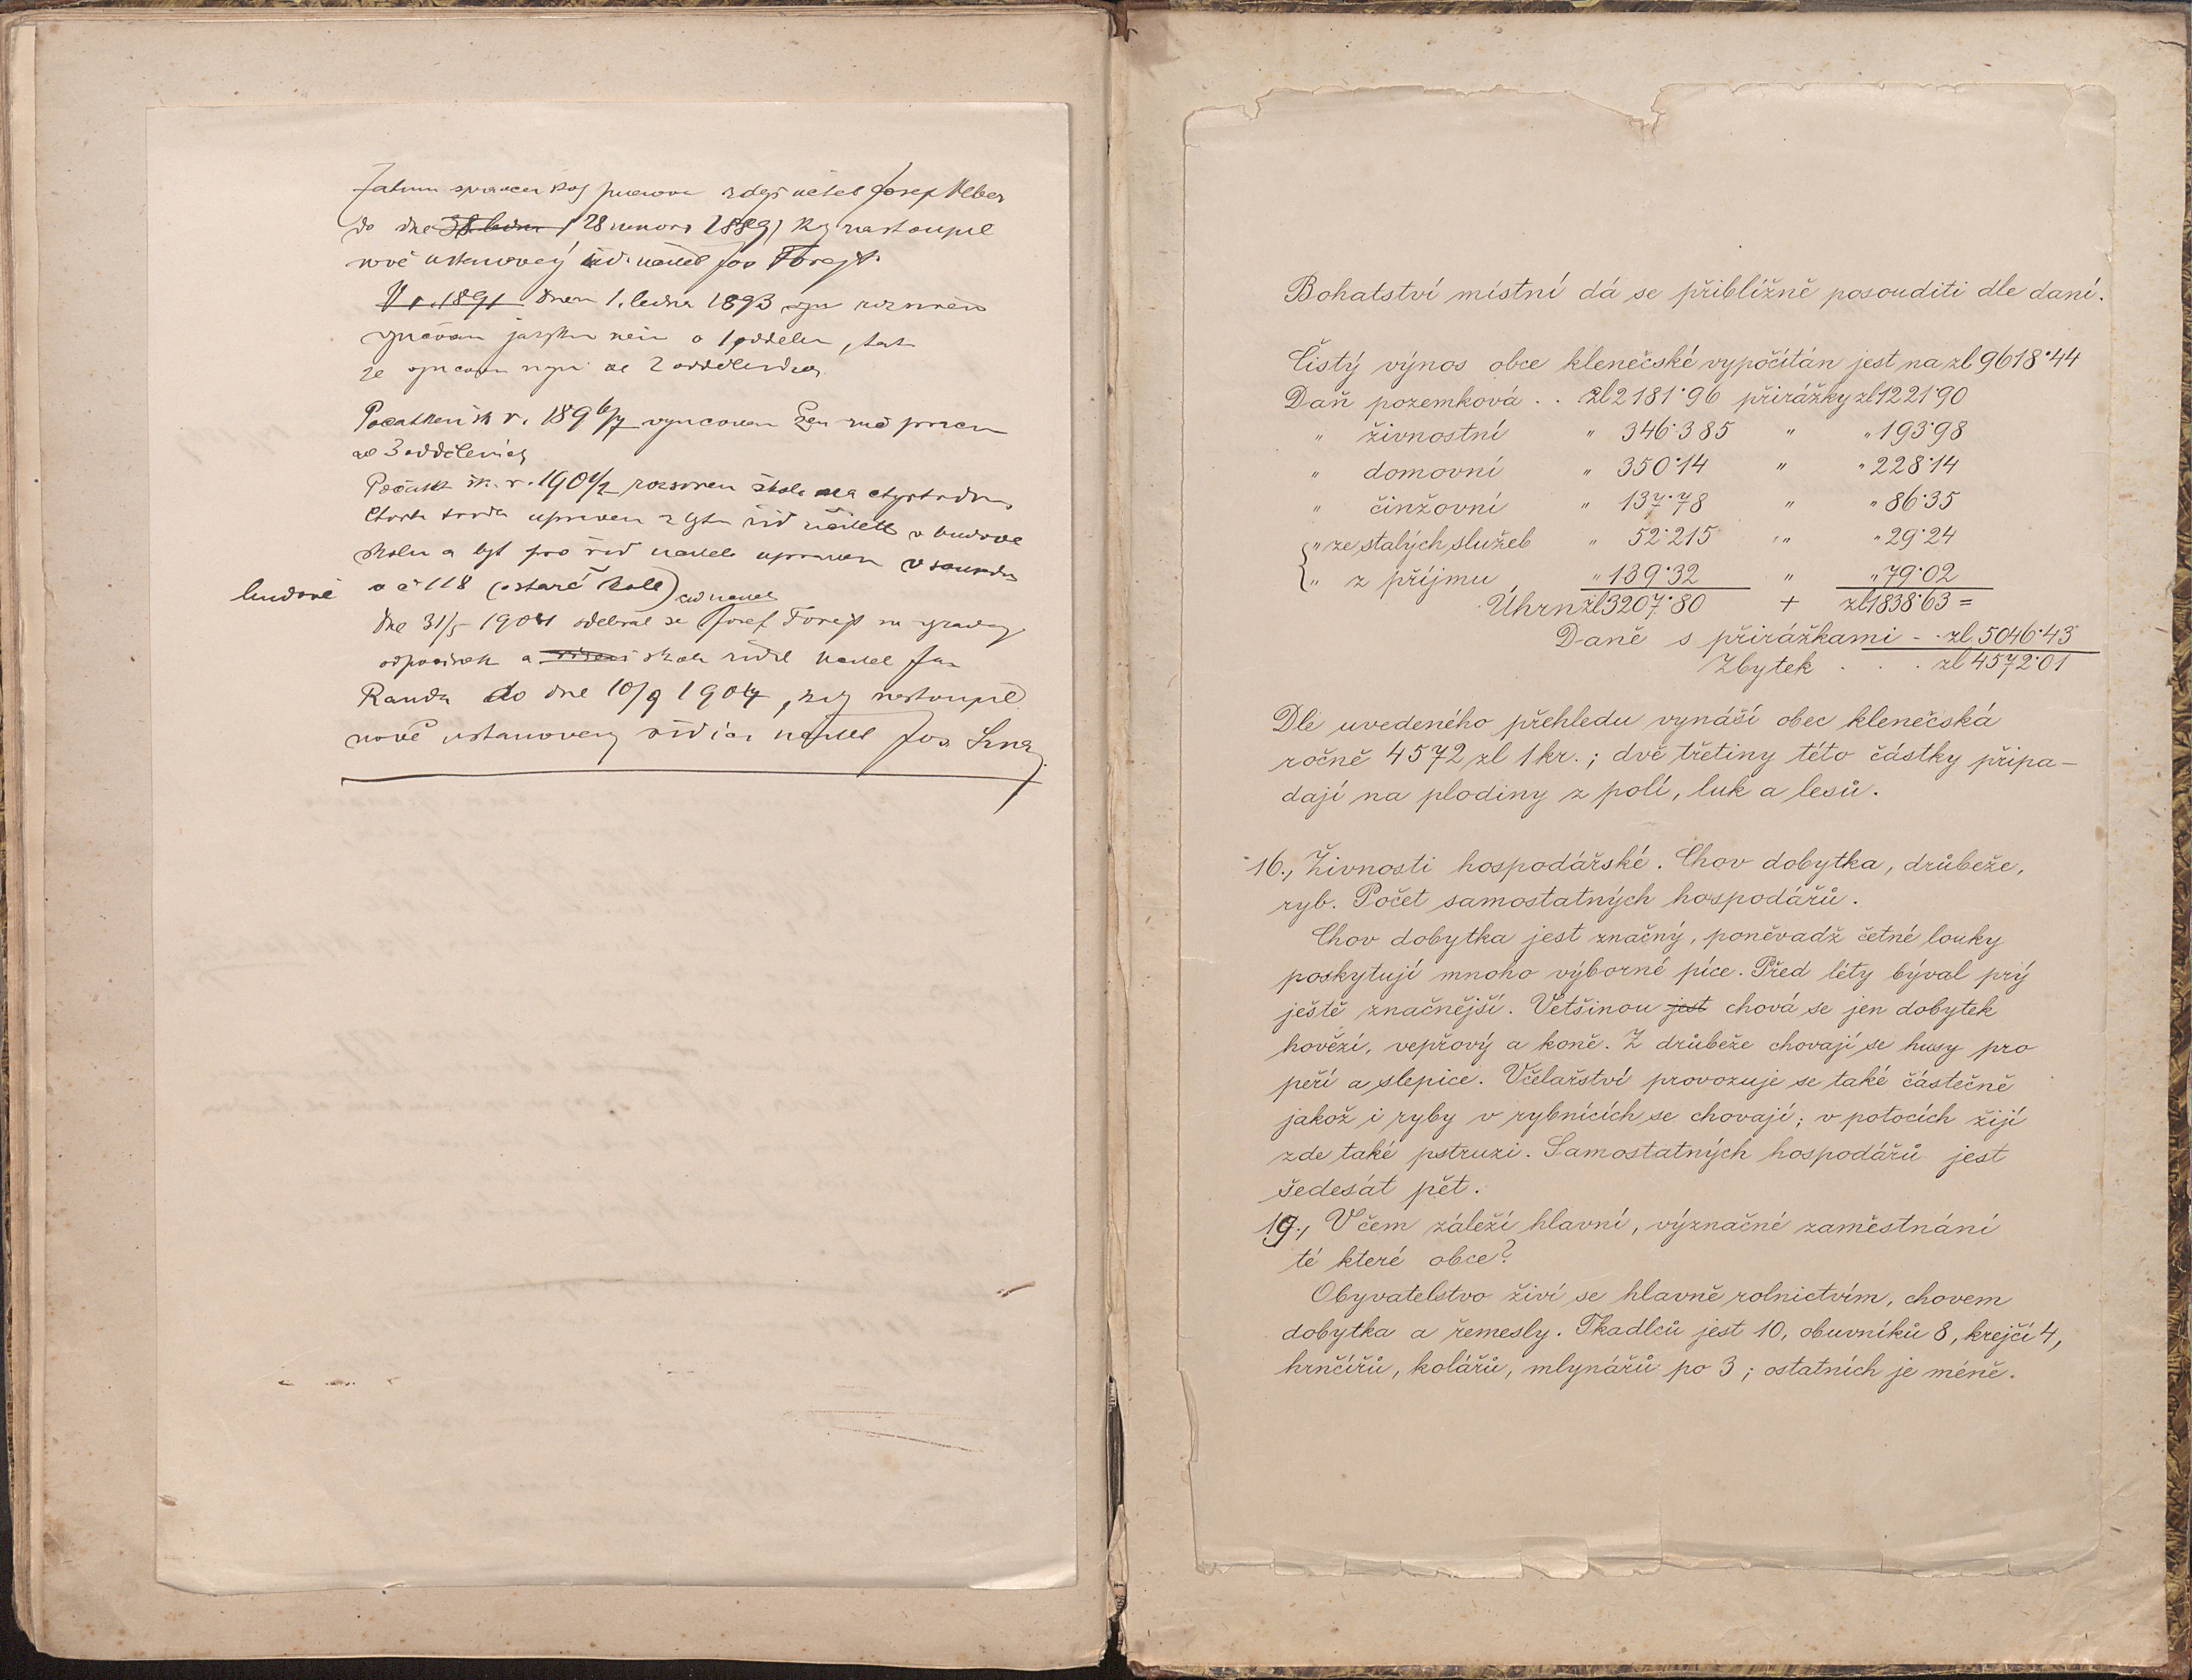 do dne 28 unora 1889, kdy nastoupil
nově ustanovený říd. učitel Jos Forejt.
V r. 1891 dnem 1. ledna 1893
vyučování jazyku o 1 oddělen, tak
že ve 2 odděleních
Počátkem šk r. 1896/7 vyučován
ve 3 odděleních
Počátk šk. r. 1901/2 rozšířen škola na čtyřtřídní
čtvrtá třída upraven z bytu říd učitele v budově
školní a byt pro říd učitele upraven v sousední
budově v č 118 (staré škole) říd učitel
Dne 31/5 1904 odebral se Josef Forejt na
odpočinek a řízení škole řídil učitel Jan
Randa do dne 10/9 1904, kdy nastoupil
nově ustanovený řídící učitel Jos
Bohatství místní dá se přibližně posouditi dle daní.
Čistý výnos obce klenečské vypočítán jest na zl 9618·44
Daň pozemková . . zl 2181·96 přirážky zl 1221·90
" živnostní " 346·385 " " 193·98
" domovní " 350·14 " " 228·14
" činžovní " 137·78 " " 86·35
" ze stalých služeb " 52·215 " " 29·24
" z příjmu " 139·32 " " 79·02
Úhrn zl 3207·80 + zl 1838·63 =
Daně s přirážkami - . zl 5046·43
Zbytek . . . zl 4572·01
Dle uvedeného přehledu vynáší obec klenečská
ročně 4572 zl 1 kr. ; dvě třetiny této částky připa-
dají na plodiny z polí, luk a lesů.
16., Živnosti hospodářské. Chov dobytka, drůbeže,
ryb. Počet samostatných hospodářů.
Chov dobytka jest značný, poněvadž četné louky
poskytují mnoho výborné píce. Před léty býval prý
ještě značnější. Vetšinou jest chová se jen dobytek
hovězí, vepřový a koně. Z drůbeže chovají se husy pro
peří a slepice. Včelařství provozuje se také částečně
jakož i ryby v rybnících se chovají; v potocích žijí
zde také pstruzi. Samostatných hospodářů jest
šedesát pět.
19., V čem záleží hlavní, význačné zaměstnání
té které obce?
Obyvatelstvo živí se hlavně rolnictvím, chovem
dobytka a řemesly. Tkadlců jest 10, obuvníků 8, krejčí 4,
hrnčířů, kolářů, mlynářů po 3 ; ostatních je méně.